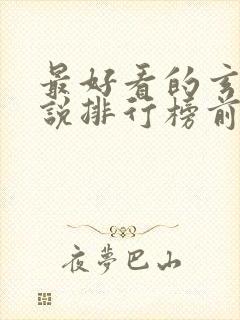 最好看的玄
說排行榜前
夜夢巴山